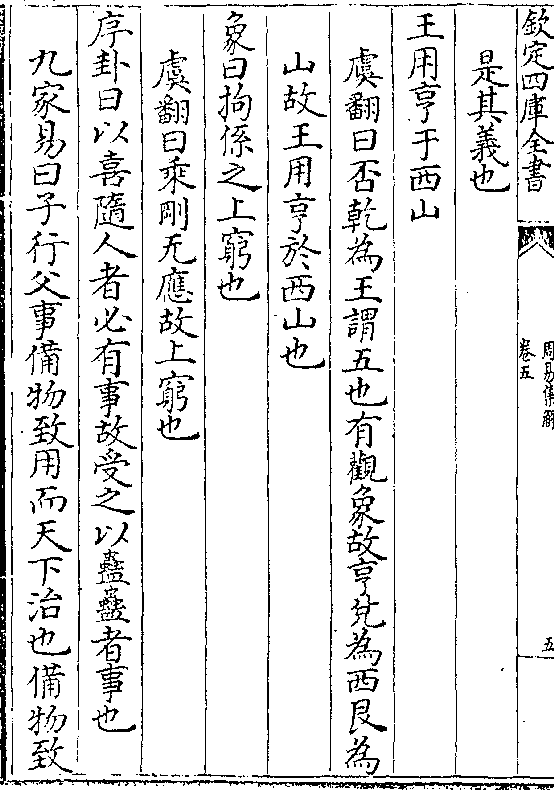 欽定四庫全書
周易集解
卷五
五
是其義也
王用亨于西山
虞翻曰否乾為王謂五也有觀象故亨兌為西艮為
山故王用亨於西山也
象曰拘係之上窮也
虞翻曰乘剛无應故上窮也
序卦曰以喜隨人者必有事故受之以蠱蠱者事也
九家易曰子行父事備物致用而天下治也備物致